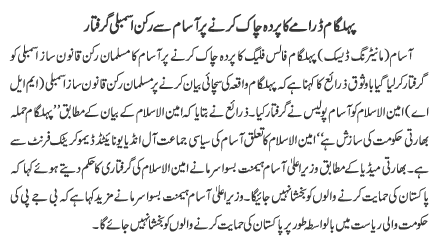 پہلگام ڈرامے کا پردہ چاک کرنے پر آسام سے رکن اسمبلی گرفتار
آسام (مانیٹرنگ ڈیسک) پہلگام فالس فلیگ کا پردہ چاک کرنے پر آسام کا مسلمان رکن قانون ساز اسمبلی کو
گرفتار کر لیا گیا با وثوق ذرائع کا کہنا ہے کہ پہلگام واقعہ کی سچائی بیان کرنے پر مسلمان رکن قانون ساز اسمبلی (ایم ایل
اے) امین الاسلام کو آسام پولیس نے گرفتار کیا۔ ذرائع نے بتایا کہ امین الاسلام کے بیان کے مطابق ”پہلگام حملہ
بھارتی حکومت کی سازش ہے“ امین الاسلام کا تعلق آسام کی سیاسی جماعت آل انڈیا یونائیٹڈ ڈیموکریٹک فرنٹ سے
ہے۔ بھارتی میڈیا کے مطابق وزیر اعلیٰ آسام ہیمنت بسوا سرما نے امین الاسلام کی گرفتاری کا حکم دیتے ہوئے کہا کہ
پاکستان کی حمایت کرنے والوں کو بخشا نہیں جائیگا۔ وزیر اعلیٰ آسام ہیمنت بسوا سرما نے مزید کہا ہے کہ بی جے پی کی
حکومت والی ریاست میں بالواسطہ طور پر پاکستان کی حمایت کرنے والوں کو بخشا نہیں جائے گا۔